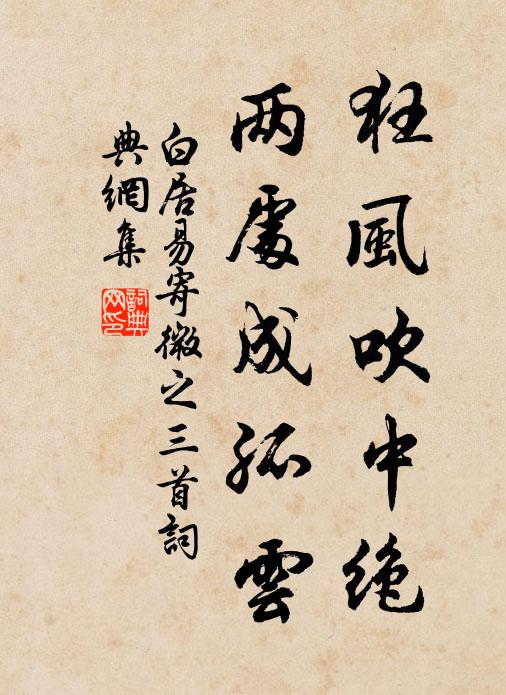 狂風吹中絶
两處成孤雲
白居易寄微之三首詞
典網集
詞典网印